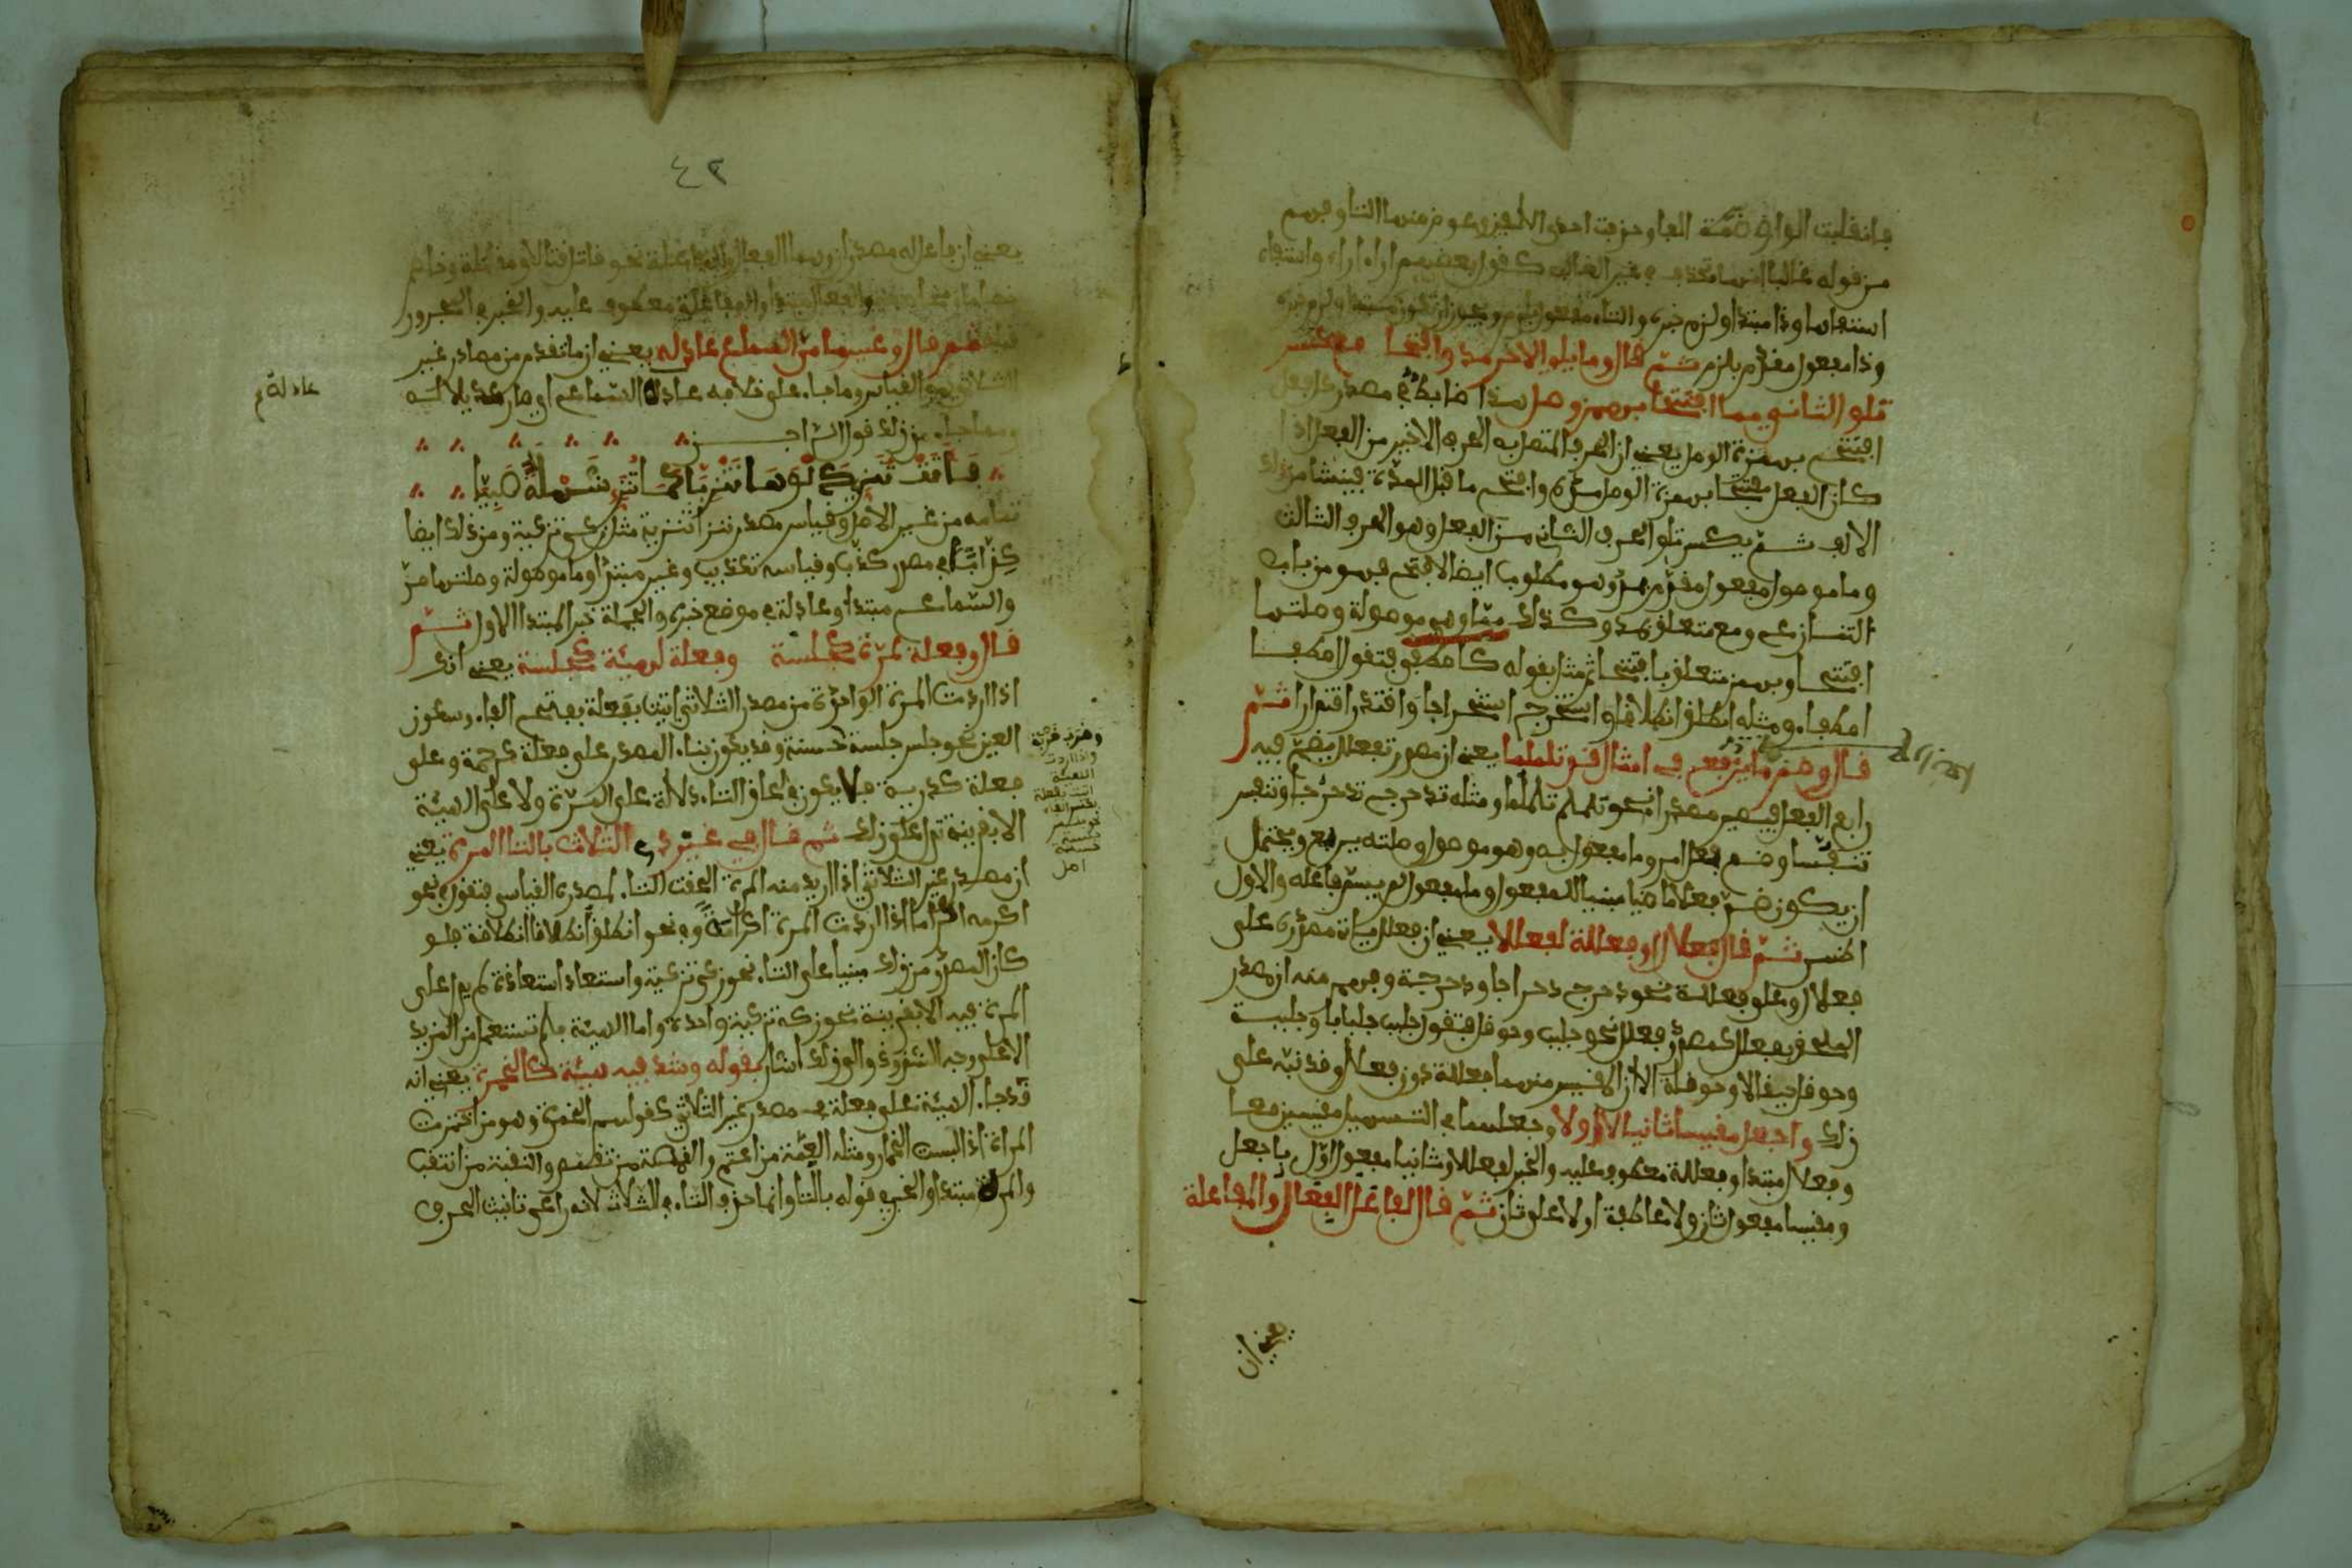 فانقلبت الواو في ضمة الفا وحذفت احدى الالفين وعوض منها التا وفهم
من قوله غالبا انها تحذف في غير الغالب كقول بعضهم اراه اراء واستفاه
استفاها وذا مبتدا ولزم خبره والتاء مفعول بلزم ويجوز ان تكون مبتدا ولزم خبره
وذا مفعول مقدم بلزم ثم قال وما يلي الاخر مد وافتحا مع كسر
تلو الثاني مما افتتحا بهمز وصل هذا ضابط في مصدر كل فعل
افتتح بهمزة الوصل يعني ان الحرف المتصل به الحرف الاخير من الفعل اذا
كان الفعل مفتتحا بهمزة الوصل مده وافتح ما قبل المدة فينشا من ذلك
الالف ثم يكسر تلو الحرف الثاني من الفعل وهو الحرف الثالث
وما موصول مفعول مقدم بمد وهو مطلوب ايضا لافتح فهو من باب
التنازع ومع متعلق بمد وكذلك مما وهي موصولة وصلتها
افتتحا وبهمز متعلق بافتتحا ثم مثل بقوله كاصطفى فتقول اصطفا
اصطفاء ومثله انطلق انطلاقا واستخرج استخراجا واقتدر اقتدارا ثم
قال وضم ما يربع في امثال قد تلملما يعني ان مصدر تفعلل يضم فيه
رابع الفعل فيصير مصدرا نحو تلملم تلملما ومثله تدحرج تدحرجا وتنفس
تنفسا وضم فعل امر وما مفعول به وهو موصول وصلته يربع ويحتمل
ان يكون ضم فعلا ماضيا مبنيا للمفعول وما مفعول لم يسم فاعله والاول
اظهر ثم قال فعلال او فعللة لفعللا يعني ان فعلل ياتي مصدره على
فعلال وعلى فعللة نحو دحرج دحراجا ودحرجة وفهم منه ان مصدر
الملحق بفعلل كمصدر فعلل نحو جلبب وحوقل فتقول جلبب جلبابا وجلببة
وحوقل حيقالا وحوقلة الا ان المقيس منهما فعللة دون فعلال وقد نبه على
ذلك واجعل مقيسا ثانيا لا اولا وجعلهما في التسهيل مقيسين معا
وفعلال مبتدا وفعللة معطوف عليه والخبر لفعللا وثانيا مفعول اول باجعل
ومقيسا مفعول ثان ولا عاطفة اولا على ثان ثم قال لفاعل الفعال والمفاعلة
٤٢
يعني ان فاعل له مصدران وهما الفعال والمفاعلة نحو قاتل قتالا ومقاتلة وخاصم
خصاما ومخاصمة والفعال مبتدا والمفاعلة معطوف عليه والخبر في المجرور
قبله ثم قال وغير ما مر السماع عادله يعني ان ما تقدم من مصادر غير
الثلاثي هو القياس وما جاء على خلافه عادله السماع اي صار عديلا له
ومما جاء من ذلك قول الراجز
عادلة
فهي تنزي دلوها تنزيا كما تنزي شهلة صبيا
تمامه من غير الاصل وقياس مصدر تنزا تنزية مثل زكى تزكية ومن ذلك ايضا
كذابا في مصدر كذب وقياسه تكذيب وغير مبتدا وما موصولة وصلتها مر
والسماع مبتدا وعادلة في موضع خبره والجملة خبر المبتدا الاول ثم
قال وفعلة لمرة كجلسة وفعلة لهيئة كجلسة يعني انك
اذا اردت المرة الواحدة من مصدر الثلاثي اتيت بفعلة بفتح الفاء وسكون
العين نحو جلس جلسة حسنة وقد يكون بناء المصدر على فعلة كرحمة وعلى
فعلة كدربة فلا يكون في الحاق التاء دلالة على المرة ولا على الهيئة
الا بقرينة تدل على ذلك ثم قال في غير ذي الثلاث بالتا المرة يعني
ان مصدر غير الثلاثي اذا اريد منه المرة الحقت التاء لمصدره القياسي فتقول في نحو
اكرمه اكراما اذا اردت المرة اكرامة وفي نحو انطلق انطلاقا انطلاقة فلو
كان المصدر من ذلك مبنيا على التاء نحو زكى تزكية واستعاذ استعاذة لم يدل على
المرة فيه الا بقرينة نحو زكه تزكية واحدة واما الهيئة فلم تستعمل من المزيد
الا على وجه الشذوذ والى ذلك اشار بقوله وشذ فيه هيئة كالخمرة يعني انه
قد جاء الهيئة على فعلة في مصدر غير الثلاثي كقولهم الخمرة وهو من اختمرت
المراة اذا لبست الخمار ومثله العمة من اعتم والقمصة من تقمص والنقبة من انتقب
والمرة مبتدا والخبر في قوله بالتا وانما حذف التاء في الثلاث لانه راعى تانيث الحرف
وضرب ضربة
واذا اردت
الهيئة
اتيت بفعلة
بكسر الفاء
نحو جلس
جلسة
حسنة
اصل